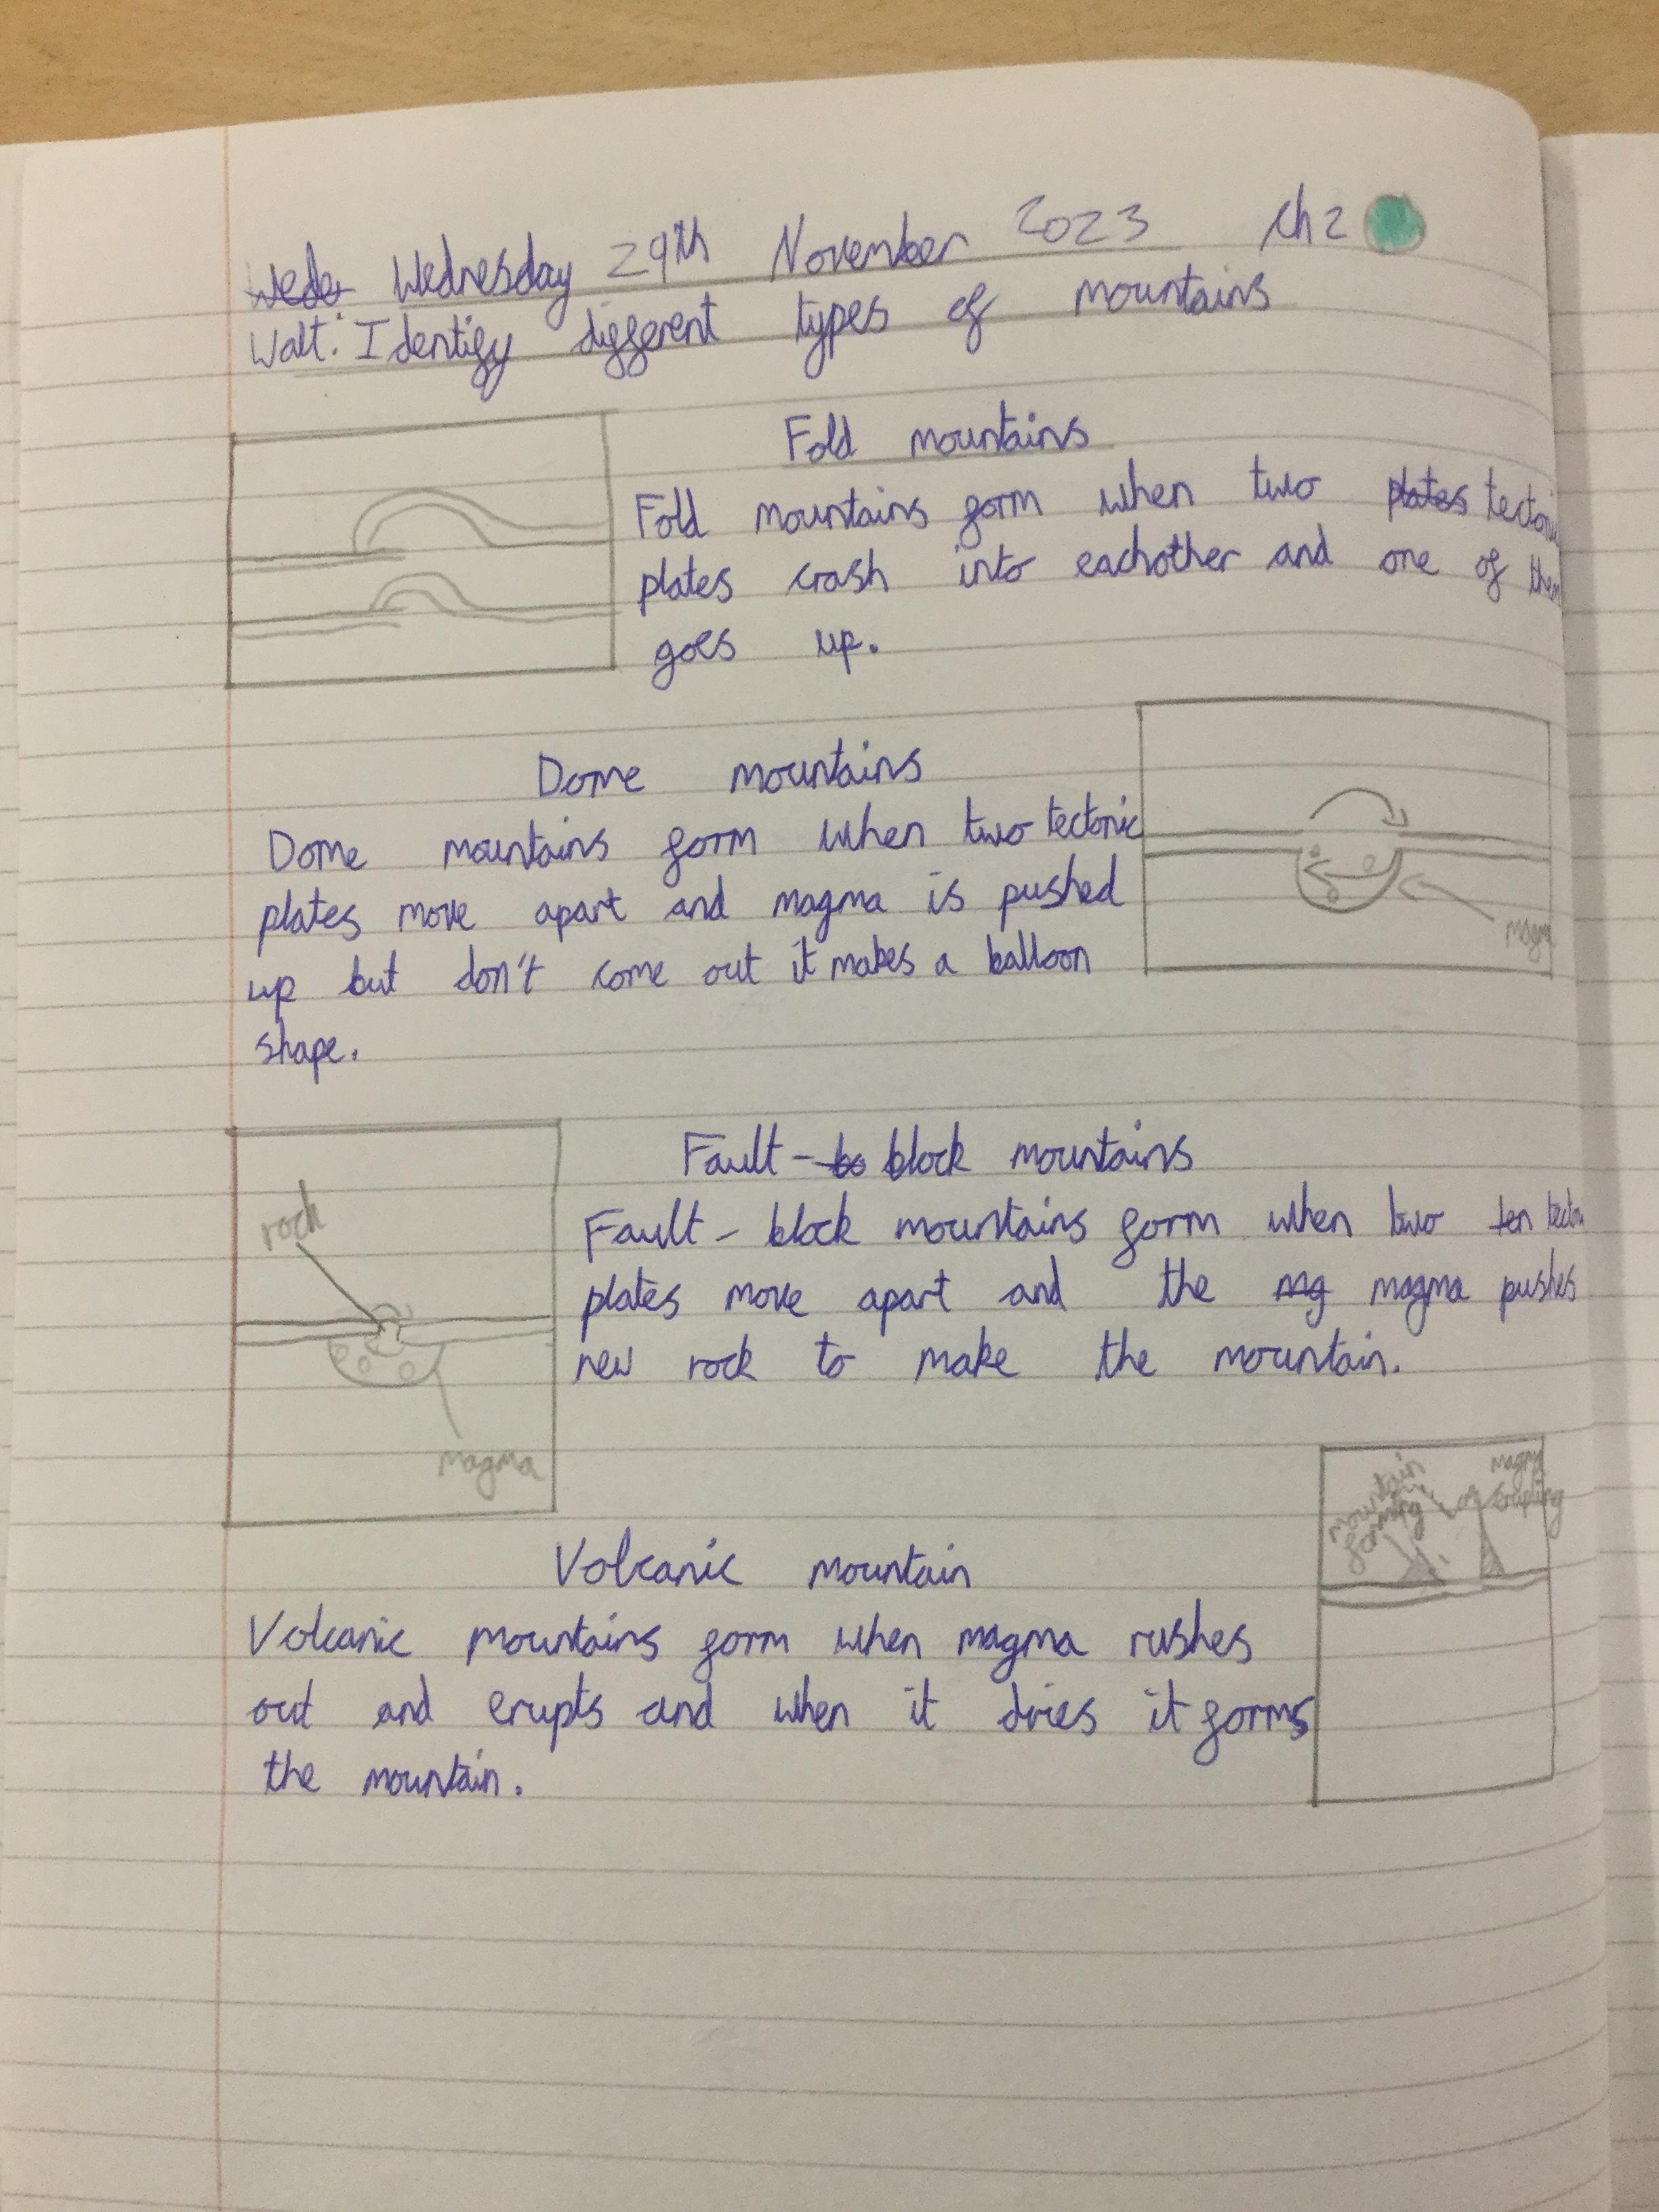 Wede Wednesday 29th November 2023 Ch 2
Walt: Identify different types of mountains
Fold mountains
Fold mountains form when two plates tectonic
plates crash into eachother and one of them
goes up.
Dome mountains
Dome mountains form when two tectonic
plates move apart and magma is pushed
up but don't come out it makes a balloon
shape.
magma
Fault-bo block mountains
rock
Fault-block mountains form when two ten tecton
plates move apart and the mg magma pushes
new rock to make the mountain.
magma
mountain
forming
magma
erupting
Volcanic mountain
Volcanic mountains form when magma rushes
out and erupts and when it dries it forms
the mountain.